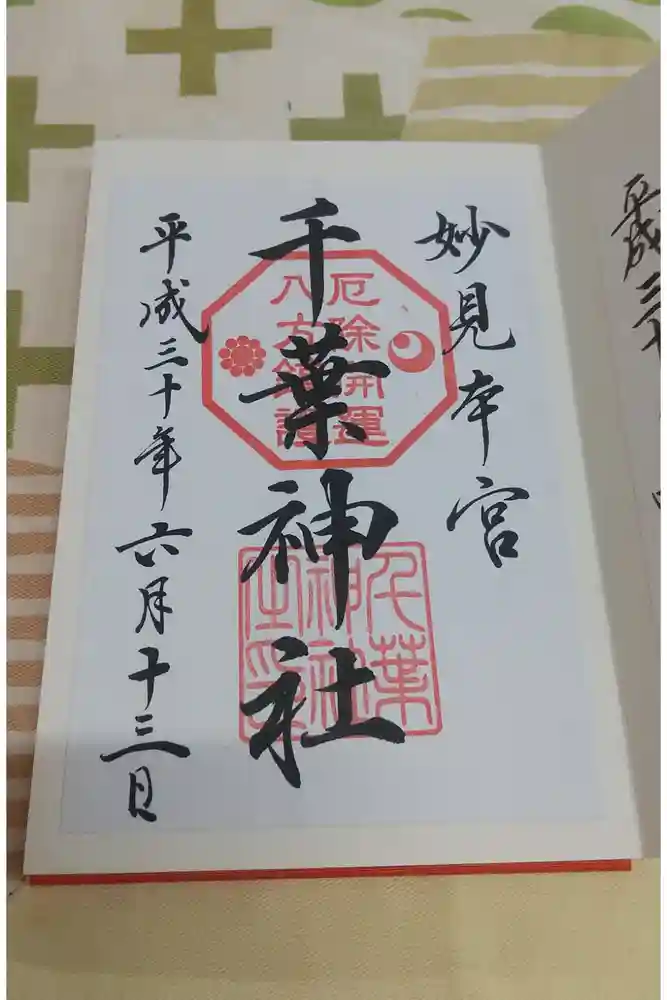 妙見本宮
千葉神社
平成三十年六月十三日
厄除開運
八方鎮護
千葉
神社
之印
平成三十